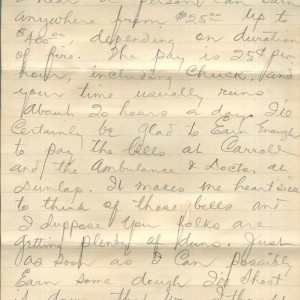 I hear a person can earn
anywhere from $25.00 up to
$400.00, depending on duration
of fire. The pay is 25¢ per
hour, including Chuck, and
your time usually runs
about 20 hours a day. I'd
Certainly be glad to Earn Enough
to pay the bills at Carroll
and the Ambulance & Doctor at
Dunlap. It makes me heart sick
to think of those bills and
I suppose you folks are
getting plenty of duns. Just
as soon as I Can possibly
Earn some dough I'll shoot
it down that way. I thought